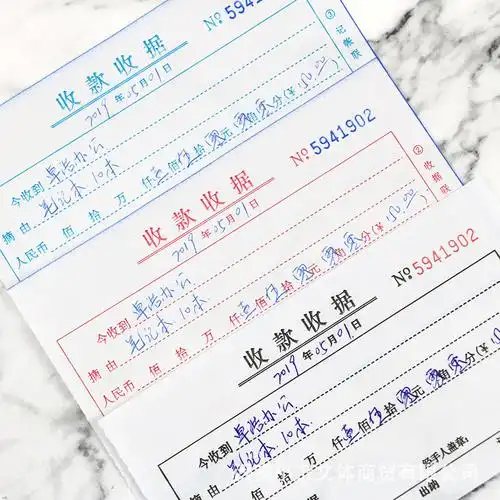 收款收据
№5941902
2019年05月01日
今收到 卓浩办公
摘由 笔记本 10本
人民币 佰 拾 万 仟 壹佰 伍拾 零元 零角 零分(¥150.00
③记帐联
收款收据
№5941902
2019年05月01日
今收到 卓浩办公
摘由 笔记本 10本
人民币 佰 拾 万 仟 壹佰 伍拾 零元 零角 零分(¥150.00
②收据联
收款收据
№5941902
2019年05月01日
今收到 卓浩办公
摘由 笔记本 10本
人民币 佰 拾 万 仟 壹佰 伍拾 零元 零角 零分(¥
经手人盖章:
出纳
文体商贸有限公司